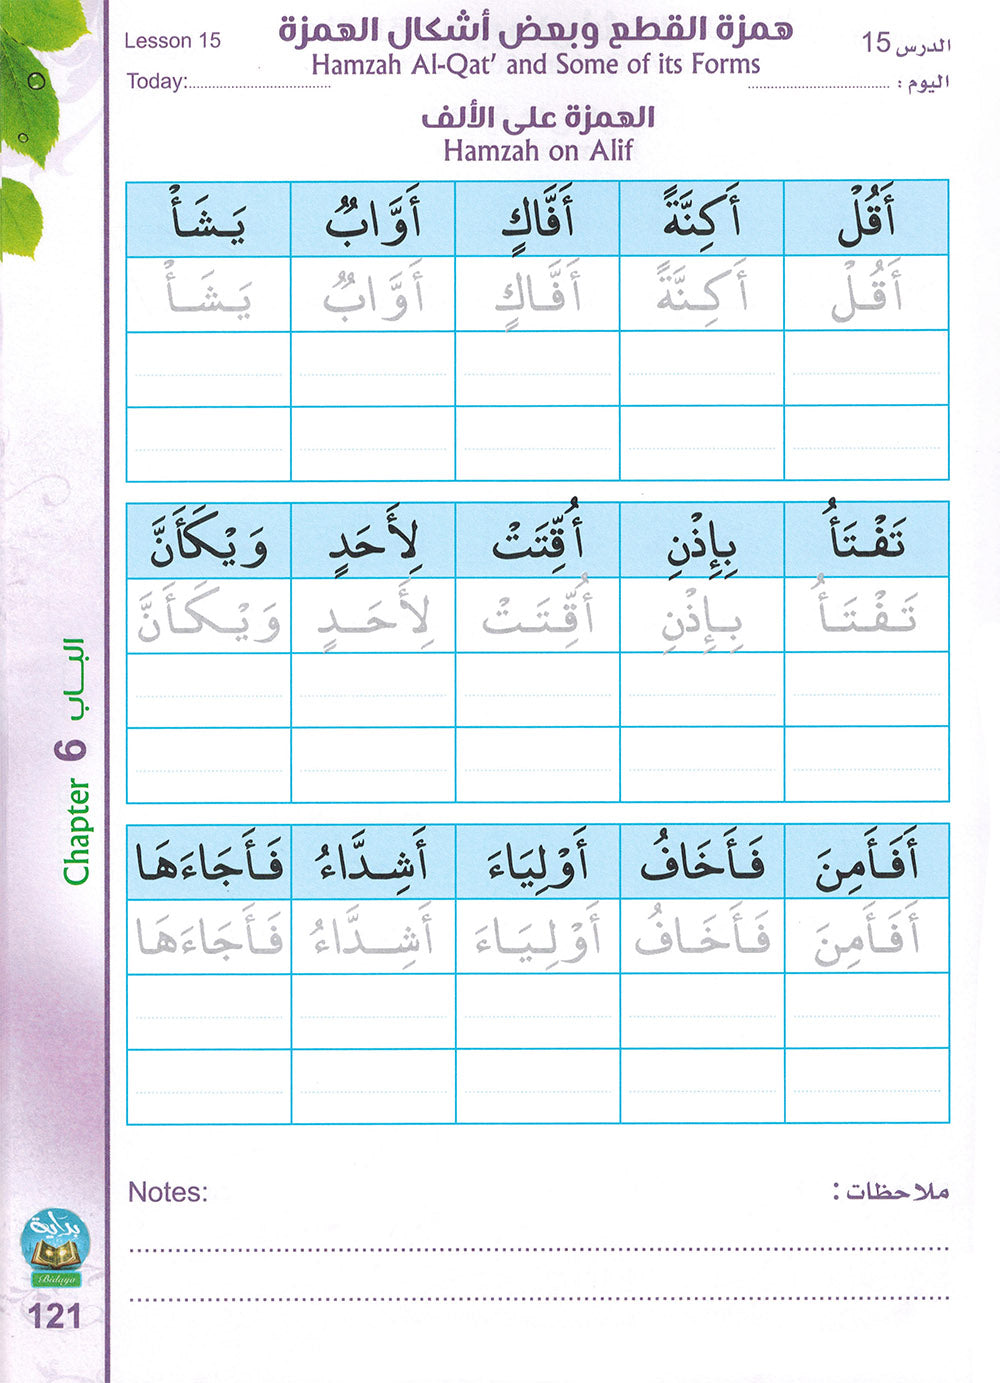 همزة القطع وبعض أشكال الهمزة
Lesson 15
الدرس 15
Hamzah Al-Qat' and Some of its Forms
Today:
اليوم :
الهمزة على الألف
Hamzah on Alif
أَقُلْ أَكِنَّةً أَفَّاكٍ أَوَّابٌ يَشَأْ
أَقُلْ أَكِنَّةً أَفَّاكٍ أَوَّابٌ يَشَأْ
تَفْتَأُ بِإِذْنِ أُقِّتَتْ لِأَحَدٍ وَيْكَأَنَّ
تَفْتَأُ بِإِذْنِ أُقِّتَتْ لِأَحَدٍ وَيْكَأَنَّ
أَفَأَمِنَ فَأَخَافُ أَوْلِيَاءَ أَشِدَّاءُ فَأَجَاءَهَا
أَفَأَمِنَ فَأَخَافُ أَوْلِيَاءَ أَشِدَّاءُ فَأَجَاءَهَا
Notes:
ملاحظات :
Chapter 6 البـاب
بداية
Bidaya
121